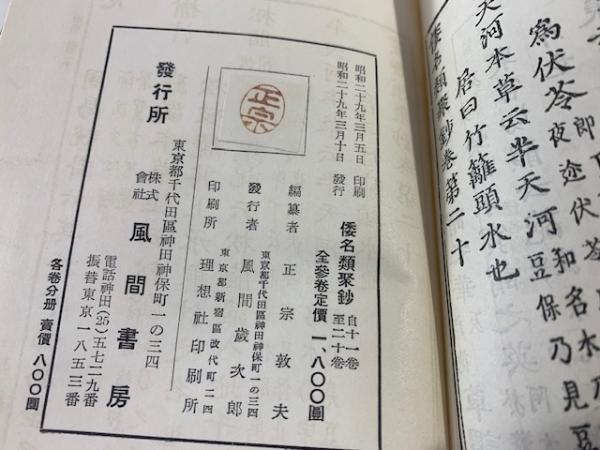 爲伏苓
夜途伏苓和名
天河本草云半天河豆保乃見豆
居曰竹籬頭水也
倭名類聚鈔卷第二十
昭和二十九年三月五日 印刷
昭和二十九年三月十日 發行
倭名類聚鈔 自十一卷 至二十卷
全參卷定價 一、八〇〇圓
編纂者 正宗敦夫
東京都千代田區神田神保町一の三四
發行者 風間歲次郎
東京都新宿區改代町二四
印刷所 理想社印刷所
正宗
東京都千代田區神田神保町一の三四
發行所 株式會社 風間書房
電話神田(25)五七二九番
振替東京一八五三番
各卷分册 賣價 八〇〇圓